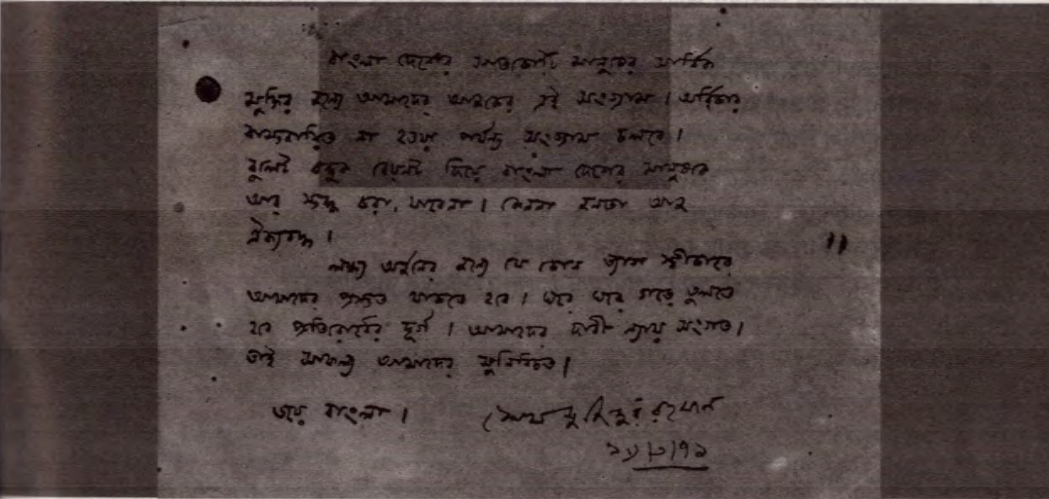 বাংলা দেশের সাতকোটি মানুষের সার্বিক
মুক্তির জন্যে আমাদের আজকের এই সংগ্রাম। অধিকার
বাস্তবায়িত না হওয়া পর্যন্ত সংগ্রাম চলবে।
বুলেট বন্দুক বেয়নেট দিয়ে বাংলা দেশের মানুষকে
আর স্তব্ধ করা, যাবেনা। কেননা জনতা আজ
ঐক্যবদ্ধ।
লক্ষ্য অর্জনের জন্যে যে কোন ত্যাগ স্বীকারে
আমাদের প্রস্তুত থাকতে হবে। ঘরে ঘরে গড়ে তুলতে
হবে প্রতিরোধের দুর্গ। আমাদের দাবী ন্যায় সংগত।
তাই সাফল্য আমাদের সুনিশ্চিত।
জয় বাংলা।
শেখ মুজিবুর রহমান